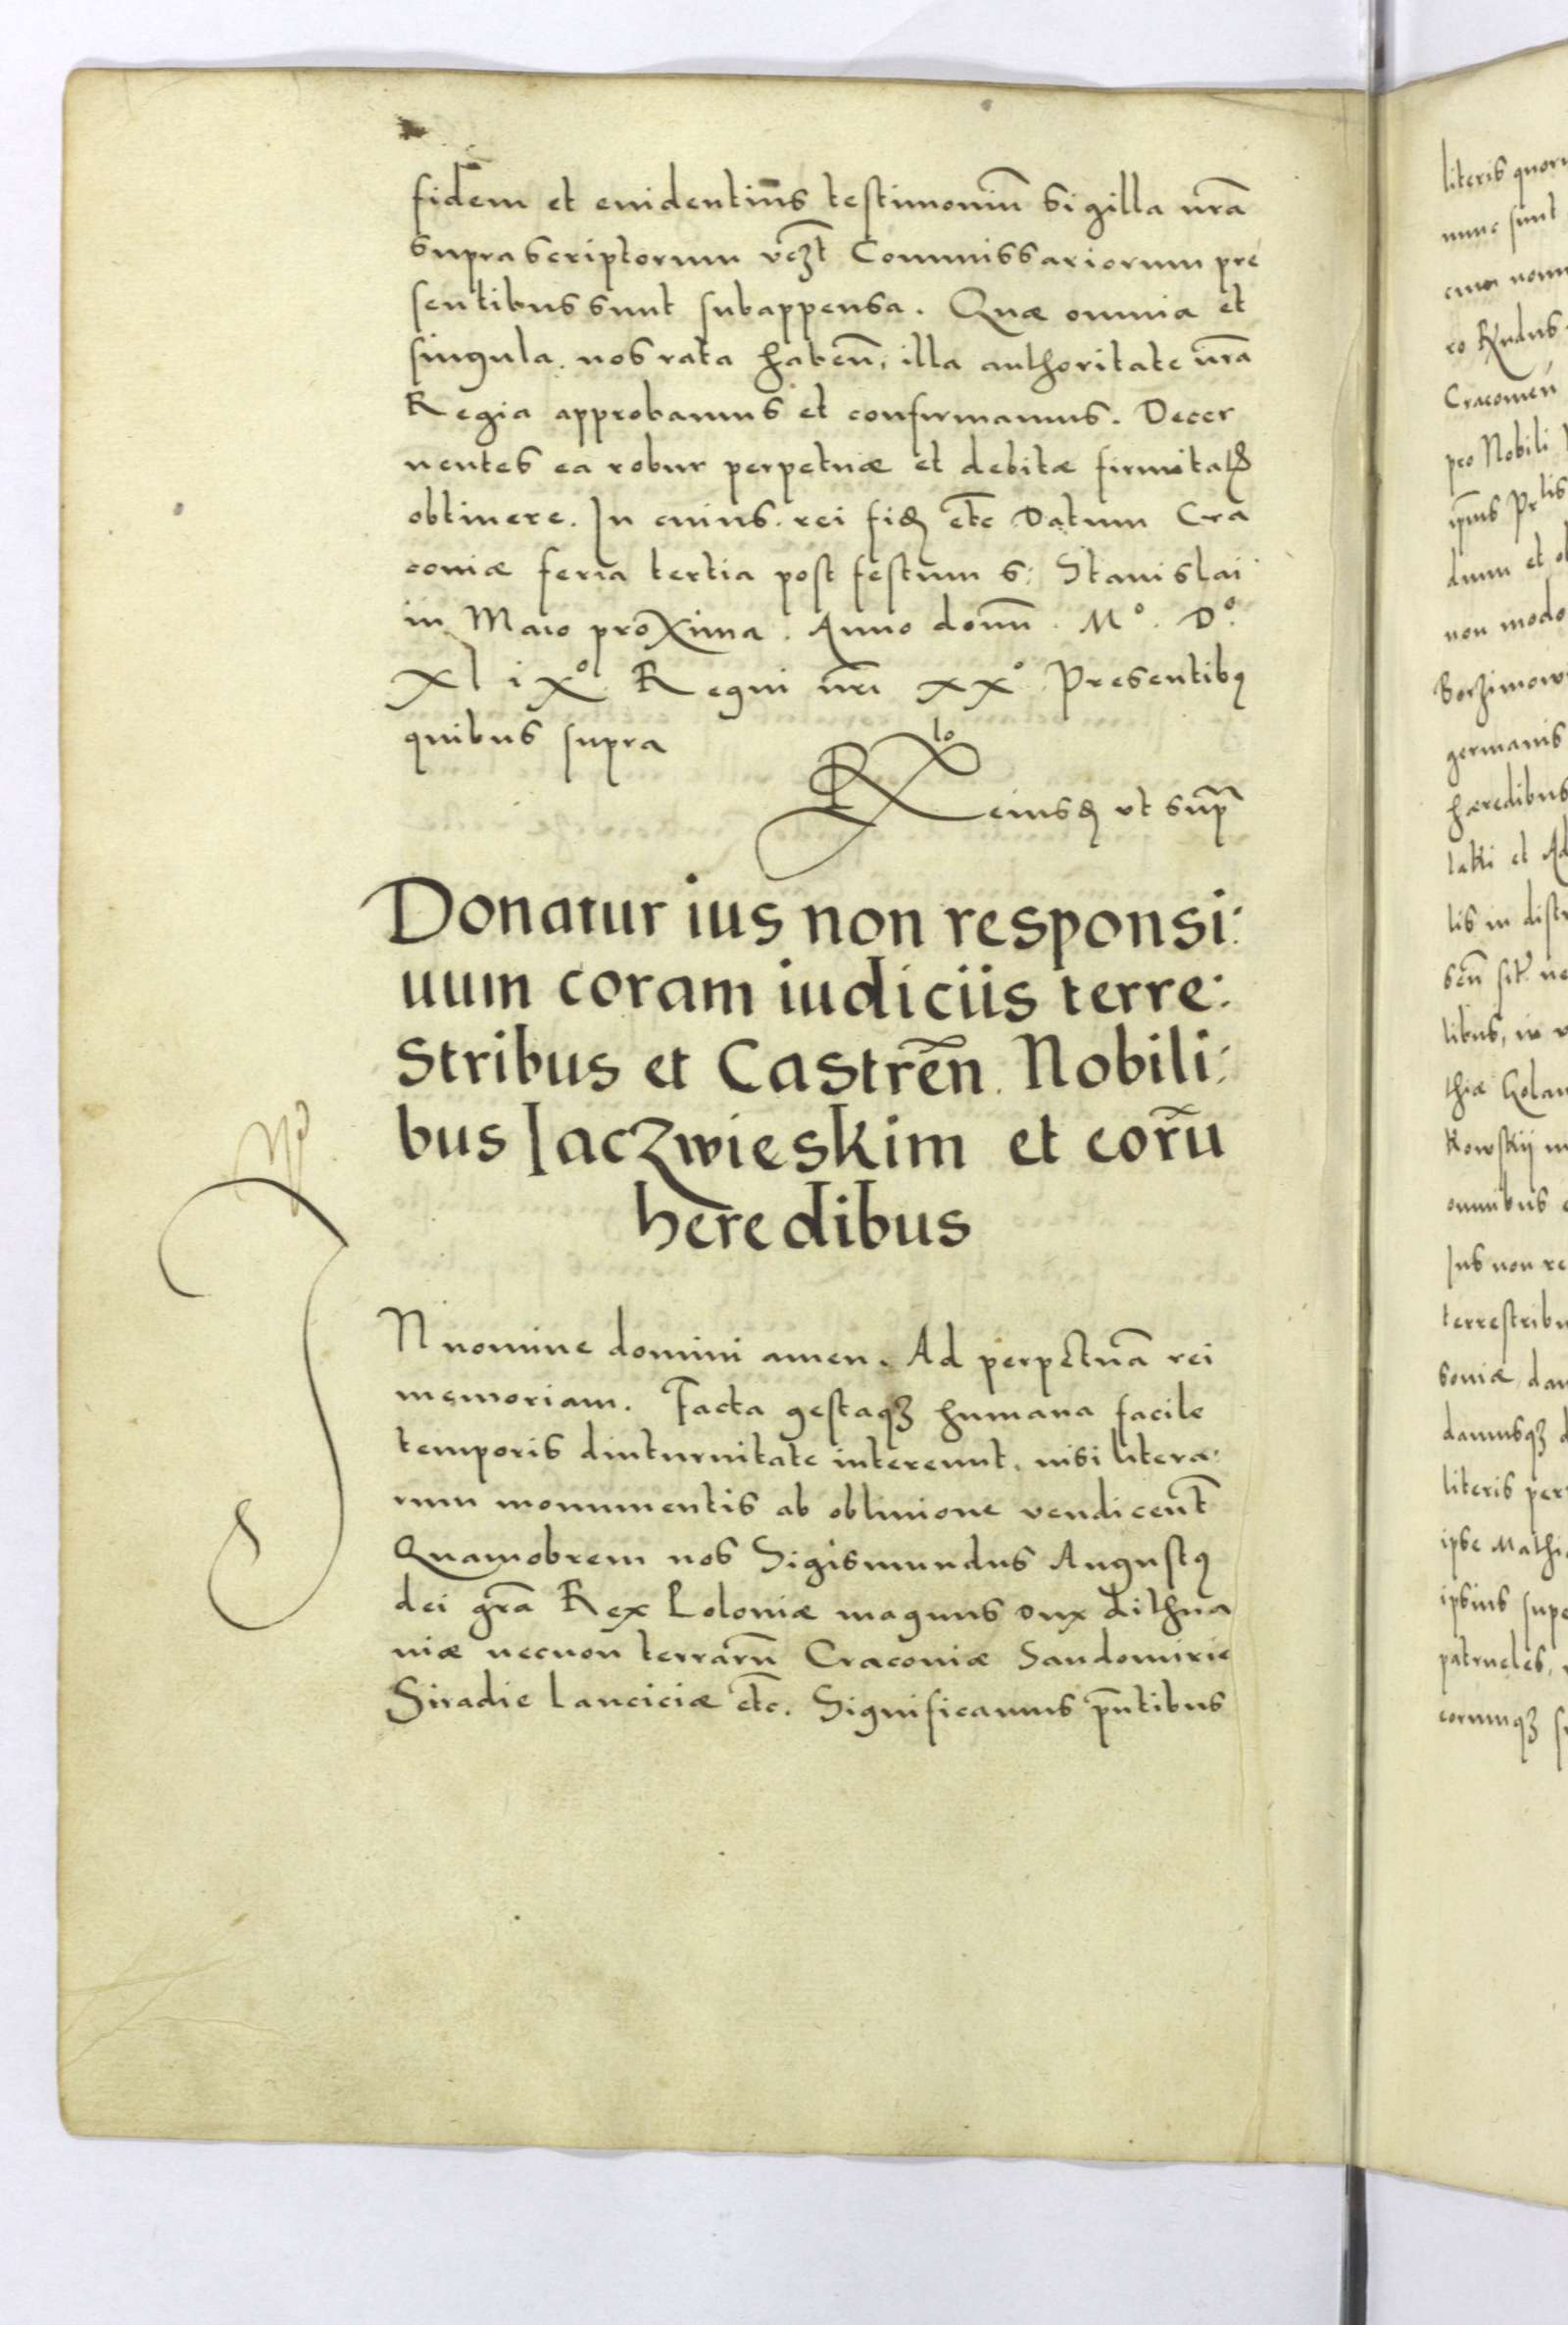 fidem et euidentius testimoniū sigilla nr̄a
suprascriptorum vcꝫt Commissariorum pre
sentibus sunt subappensa. Quæ omnia et
singula nos rata haben̄, illa authoritate nr̄a
Regia approbamus et confirmamus. Decer
nentes ea robur perpetuæ et debitæ firmitatꝭ
obtinere. In cuius rei fidꝫ etc̄ Datum Cra
couiæ feria tertia post festum S: Stanislai
in Maio proxima. Anno domn̄. Mº. Dº.
Xlixº Regni nr̄i xxº Presentibꝰ
quibus supra
Rlo eiusdꝫ vt supr̄
Donatur ius non responsi:
uum coram iudiciis terre:
stribus et Castren̄. Nobili:
bus Jaczwieskim et eorū
heredibus
IN nomine domini amen. Ad perpetuā rei
memoriam. Facta gestaqꝫ humana facile
temporis diuturnitate intereunt, nisi litera:
rum monumentis ab obliuione vendicent̄
Quamobrem nos Sigismundus Augustꝰ
dei gr̄a Rex Poloniæ magnus dux Lithua
niæ necnon terrarū Cracouiæ Sandomirie
Siradie Lanciciæ etc̄. Significamus pn̄tibus
literis quoru
nunc sunt
germanis
hæredibus
lis in distr
omnibus
Ius non re
terrestribu
literis per
ipse Mathi
ipsius supe
patrueles,